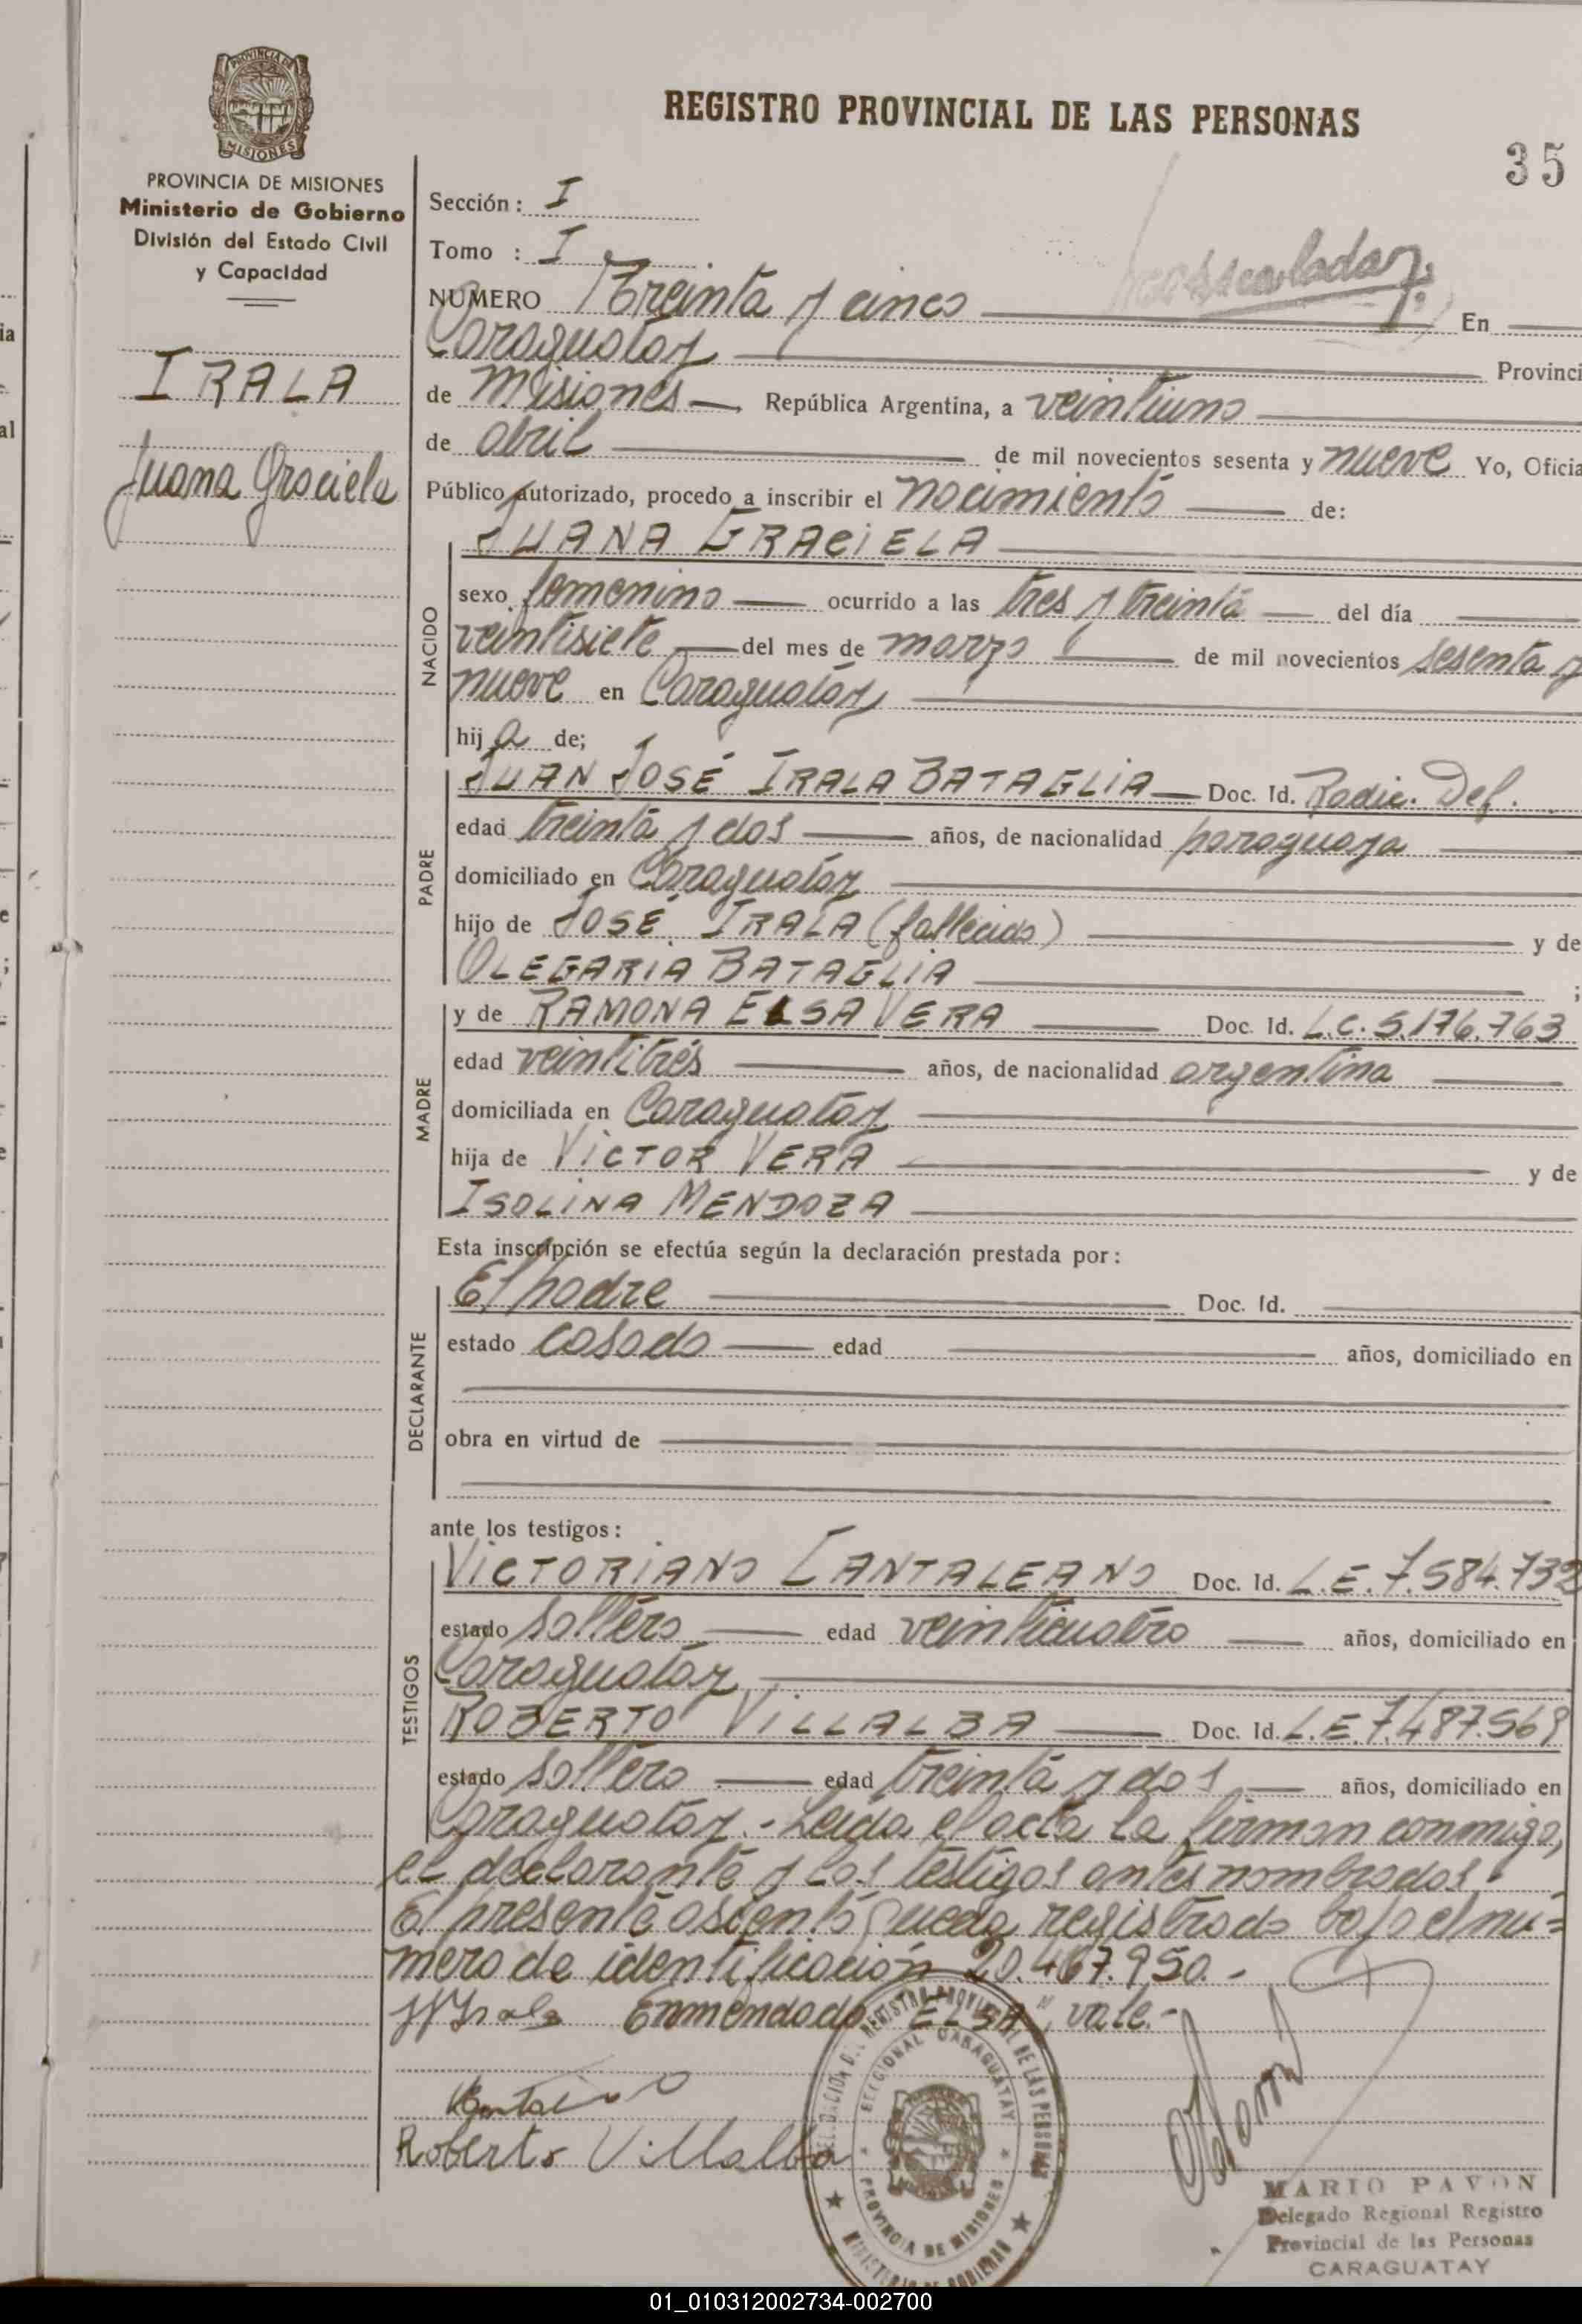 REGISTRO PROVINCIAL DE LAS PERSONAS
35
PROVINCIA DE MISIONES
Ministerio de Gobierno
División del Estado Civil
y Capacidad
IRALA
Juana Graciela
Sección: I
Tomo : I
NUMERO Treinta y cinco En
Caraguatay Provinci
de Misiones República Argentina, a veintiuno
de abril de mil novecientos sesenta y nueve Yo, Oficia
Público autorizado, procedo a inscribir el nacimiento de:
NACIDO
JUANA GRACIELA
sexo femenino ocurrido a las tres y treinta del día
veintisiete del mes de marzo de mil novecientos sesenta y
nueve en Caraguatay
hija de;
PADRE
JUAN JOSÉ IRALA BATAGLIA Doc. Id. Radic. Def.
edad treinta y dos años, de nacionalidad paraguaya
domiciliado en Caraguatay
hijo de JOSÉ IRALA (fallecido) y de
OLEGARIA BATAGLIA ;
MADRE
y de RAMONA ELSA VERA Doc. Id. L.C. 5.176.763
edad veintitrés años, de nacionalidad argentina
domiciliada en Caraguatay
hija de VICTOR VERA y de
ISOLINA MENDOZA
Esta inscripción se efectúa según la declaración prestada por:
DECLARANTE
El padre Doc. Id.
estado casado edad años, domiciliado en
obra en virtud de
ante los testigos:
TESTIGOS
VICTORIANO CANTALEANO Doc. Id. L.E. 7.584.732
estado soltero edad veinticuatro años, domiciliado en
Caraguatay
ROBERTO VILLALBA Doc. Id. L.E. 7.487.569
estado soltero edad treinta y dos años, domiciliado en
Caraguatay.- Leida el acta la firman conmigo,
el declarante y los testigos antes nombrados.
El presente asiento queda registrado bajo el nu=
mero de identificación 20.467.950.-
Irala Enmendado "ELSA", vale.-
Roberto Villalba
DELEGACION DEL REGISTRO PROVINCIAL DE LAS PERSONAS
REGIONAL CARAGUATAY
PROVINCIA DE MISIONES
MINISTERIO DE GOBIERNO
MARIO PAVON
Delegado Regional Registro
Provincial de las Personas
CARAGUATAY
01_010312002734-002700